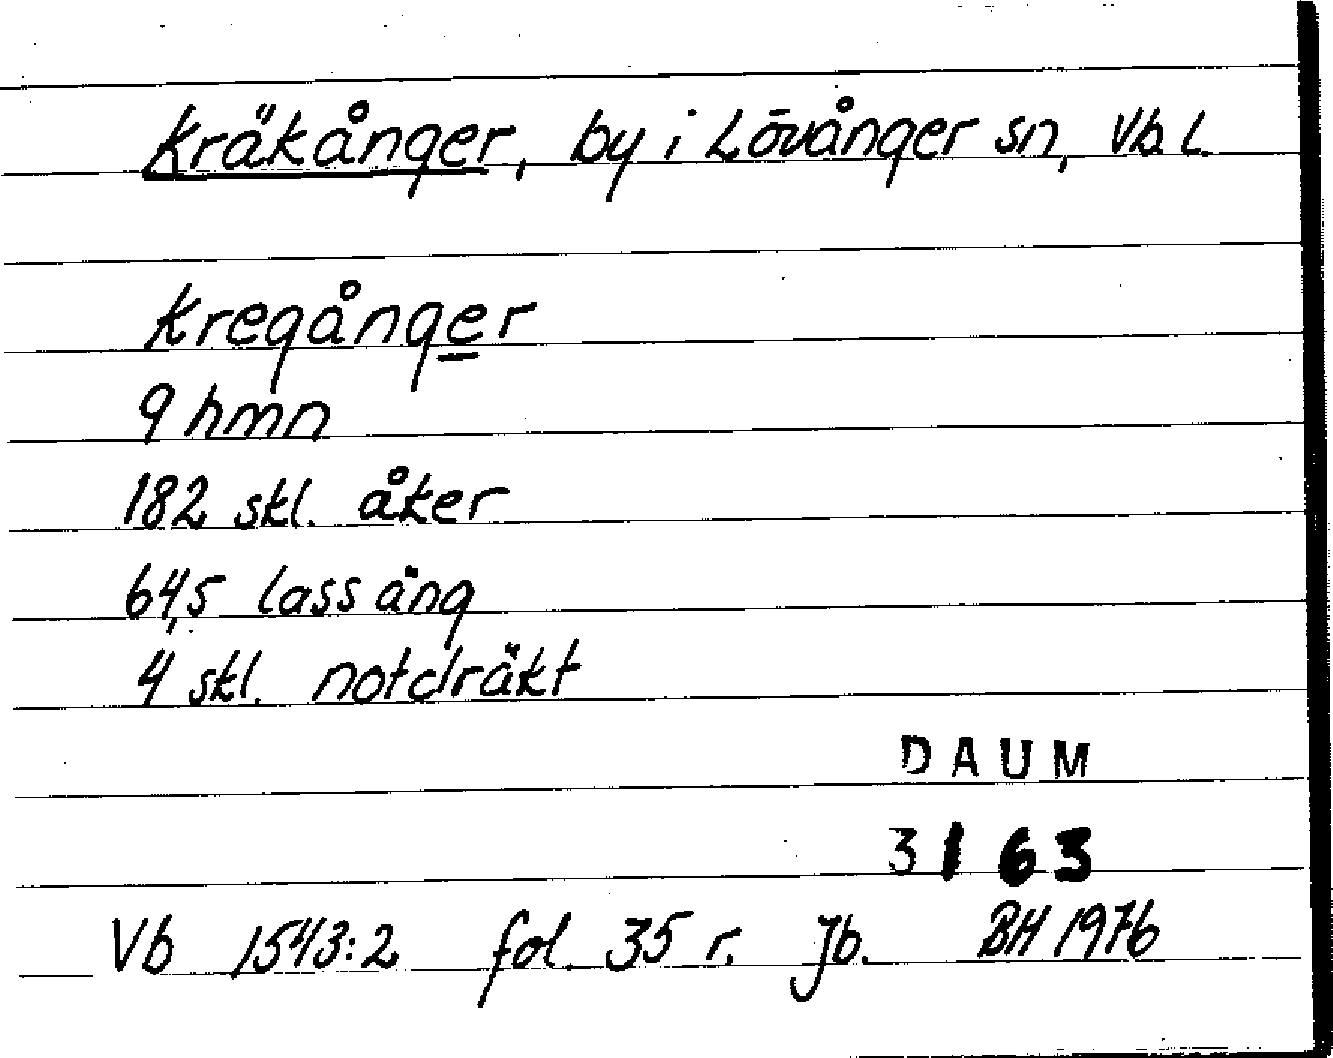 Kräkånger, by i Lövånger sn, Vb. L.
Kregånger
9 hmn
182 skl. åker
64,5 lass äng
4 skl. notdräkt
DAUM
3163
Vb 1543:2 fol. 35 r. Jb. BH 1976